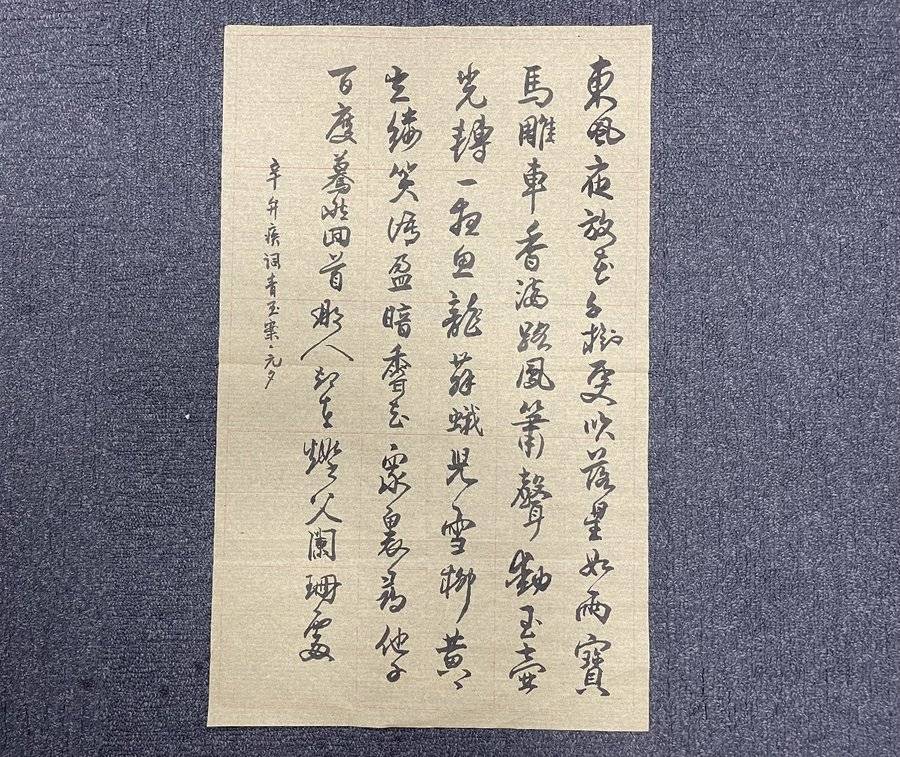 東風夜放花千樹更吹落星如雨寶
馬雕車香滿路鳳簫聲動玉壺
光轉一夜魚龍舞蛾兒雪柳黃
金縷笑語盈暗香去眾裏尋他千
百度驀然回首那人卻在燈火闌珊處
辛弃疾詞青玉案·元夕